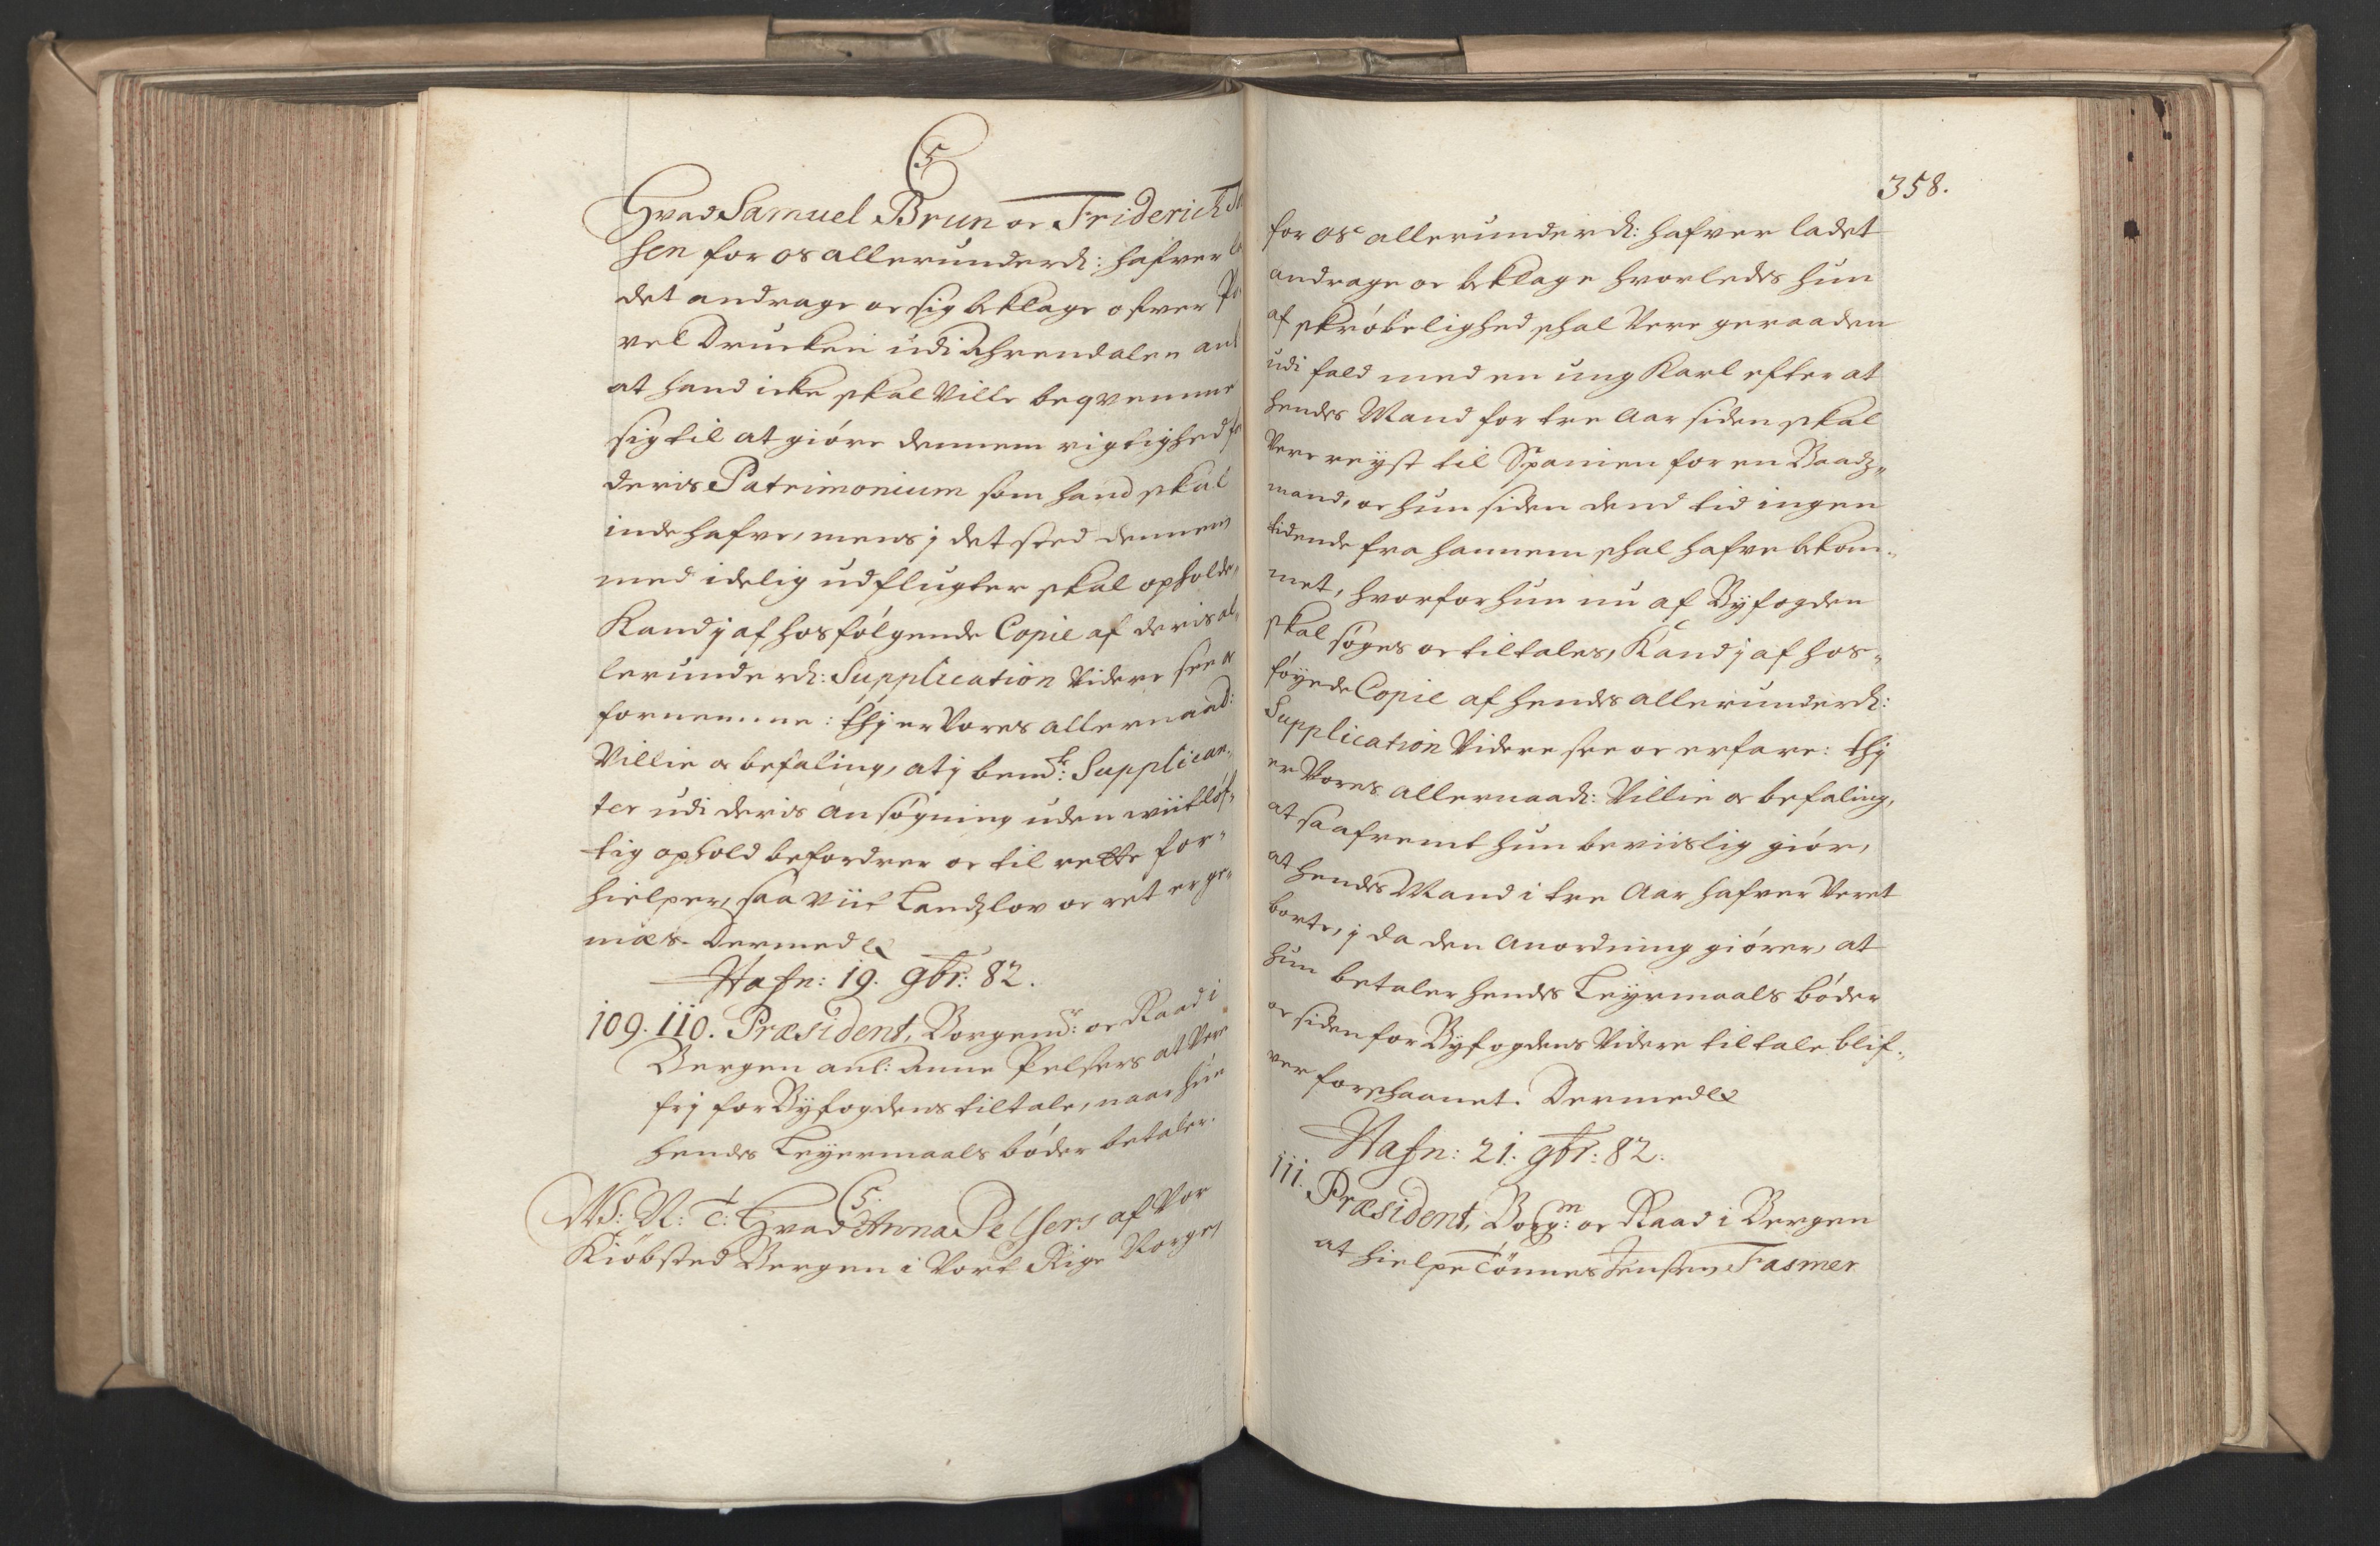 C5
Hvad Samuel Brun oc Friderich
sen for os allerunderd: hafver
det andrage oc sig beklage ofver
vel Drucken udi Ahrendalen anl
at hand icke skal Ville beqvemme
sig til at giöre dennem rigtighed
deris Patrimonium som hand skal
indehafve, mens j det sted dennem
med idelig udflugter skal opholde,
Kand j af hosfölgende Copie af deris al„
lerunderd: Supplication Videre see oc
fornemme: thj er Vores allernaad:
Villie oc befaling, at j bemte: Supplican„
ter udi deris Ansögning uden wiitlöf„
tig ophold befordrer oc til rette for„
hielper, saa viit Landzlov oc ret er ge„
mæs. Dermed &
Hafn: 19. 9br: 82.
109. 110. Præsident, Borgemr: oc Raad i
Bergen anl: Anne Pelsers at Vere
frj for Byfogdens tiltale, naar hun
hendes Leyermaals böder betaler.
C5.
W: N: T: Hvad Anna Pelsers af Vor
Kiöbsted Bergen i Vort Rige Norge
358.
for os allerunderd: hafver ladet
andrage oc beklage hvorledes hun
af skröbelighed skal Vere geraaden
udi fald med en ung Karl efter at
hendes Mand for tre Aar siden skal
Vere reyst til Spanien for en Baadz„
mand, oc hun siden dend tid ingen
tidende fra hannem skal hafve bekom„
met, hvorfor hun nu af Byfogden
skal söges oc tiltales, Kand j af hos„
föyede Copie af hendes allerunderd:
Supplication Videre see oc erfare: thj
er Vores allernaad: Villie oc befaling,
at saafremt hun beviislig giör,
at hendes Mand i tre Aar hafver Veret
borte, j da den Anordning giörer, at
hun betaler hendes Leyermaals böder
oc siden for Byfogdens Videre tiltale blif„
ver forskaanet. Dermed &
Hafn: 21. 9br: 82.
111. Præsident, Borgm: oc Raad i Bergen
at hielpe Tönnes Jensen Fasmer